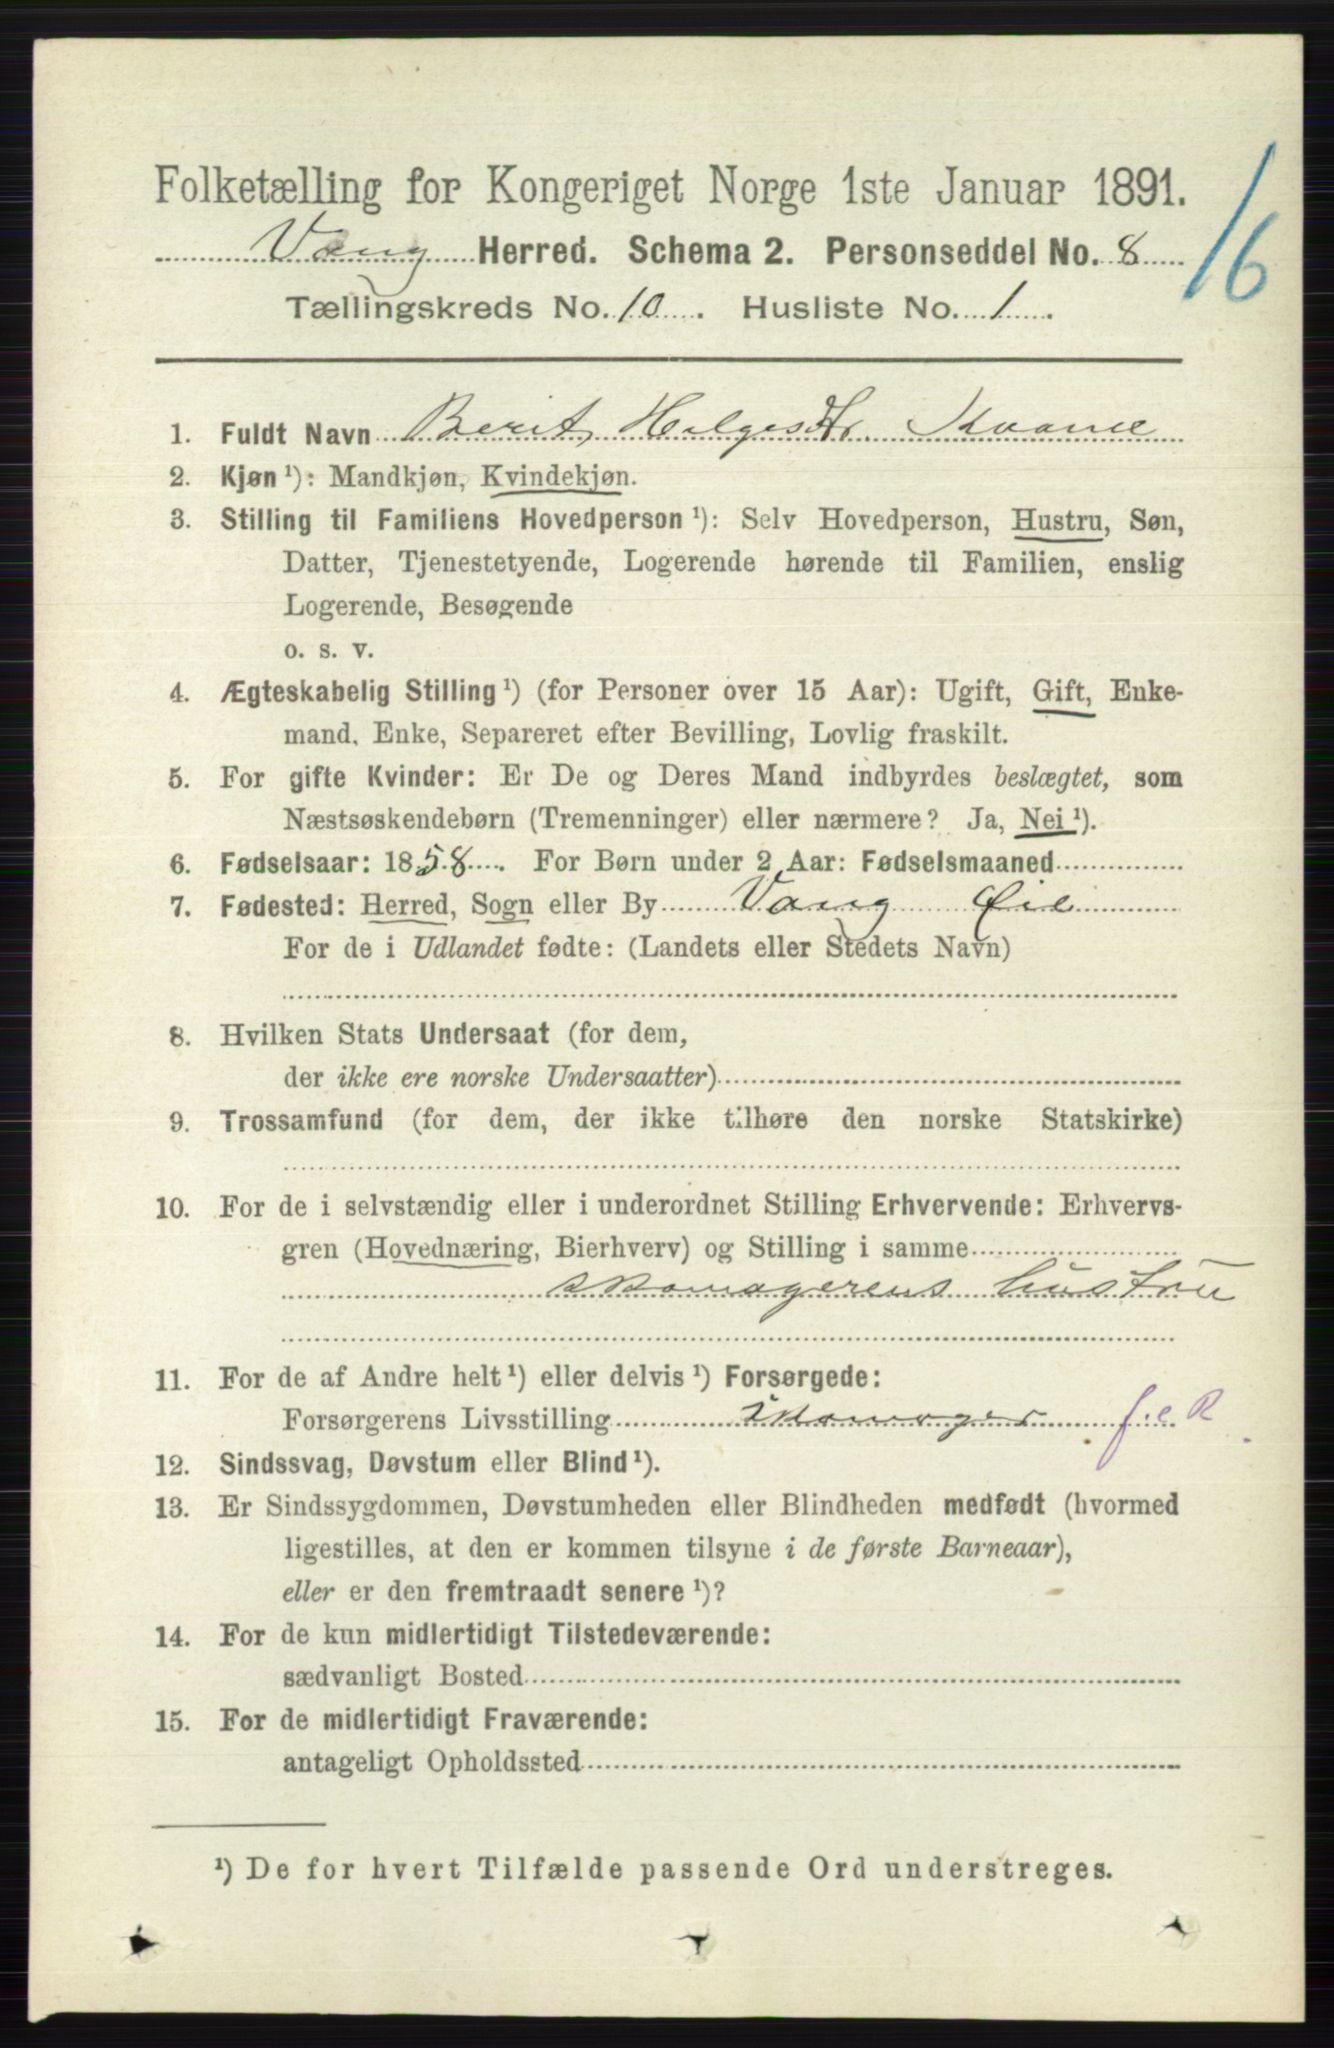 Folketælling for Kongeriget Norge 1ste Januar 1891.
16
Vang Herred. Schema 2. Personseddel No. 8
Tællingskreds No. 10. Husliste No. 1.
1. Fuldt Navn Berit Helgesdtr
2. Kjøn ¹): Mandkjøn, Kvindekjøn.
3. Stilling til Familiens Hovedperson ¹): Selv Hovedperson, Hustru, Søn,
Datter, Tjenestetyende, Logerende hørende til Familien, enslig
Logerende, Besøgende
o. s. v.
4. Ægteskabelig Stilling ¹) (for Personer over 15 Aar): Ugift, Gift, Enke-
mand, Enke, Separeret efter Bevilling, Lovlig fraskilt.
5. For gifte Kvinder: Er De og Deres Mand indbyrdes beslægtet, som
Næstsøskendebørn (Tremenninger) eller nærmere? Ja, Nei ¹).
6. Fødselsaar: 1858. For Børn under 2 Aar: Fødselsmaaned
7. Fødested: Herred, Sogn eller By Vang Øie
For de i Udlandet fødte: (Landets eller Stedets Navn)
8. Hvilken Stats Undersaat (for dem,
der ikke ere norske Undersaatter)
9. Trossamfund (for dem, der ikke tilhøre den norske Statskirke)
10. For de i selvstændig eller i underordnet Stilling Erhvervende: Erhvervs-
gren (Hovednæring, Bierhverv) og Stilling i samme
skomagerens hustru
11. For de af Andre helt ¹) eller delvis ¹) Forsørgede:
Forsørgerens Livsstilling skomager f.e.R
12. Sindssvag, Døvstum eller Blind ¹).
13. Er Sindssygdommen, Døvstumheden eller Blindheden medfødt (hvormed
ligestilles, at den er kommen tilsyne i de første Barneaar),
eller er den fremtraadt senere ¹)?
14. For de kun midlertidigt Tilstedeværende:
sædvanligt Bosted
15. For de midlertidigt Fraværende:
antageligt Opholdssted
¹) De for hvert Tilfælde passende Ord understreges.